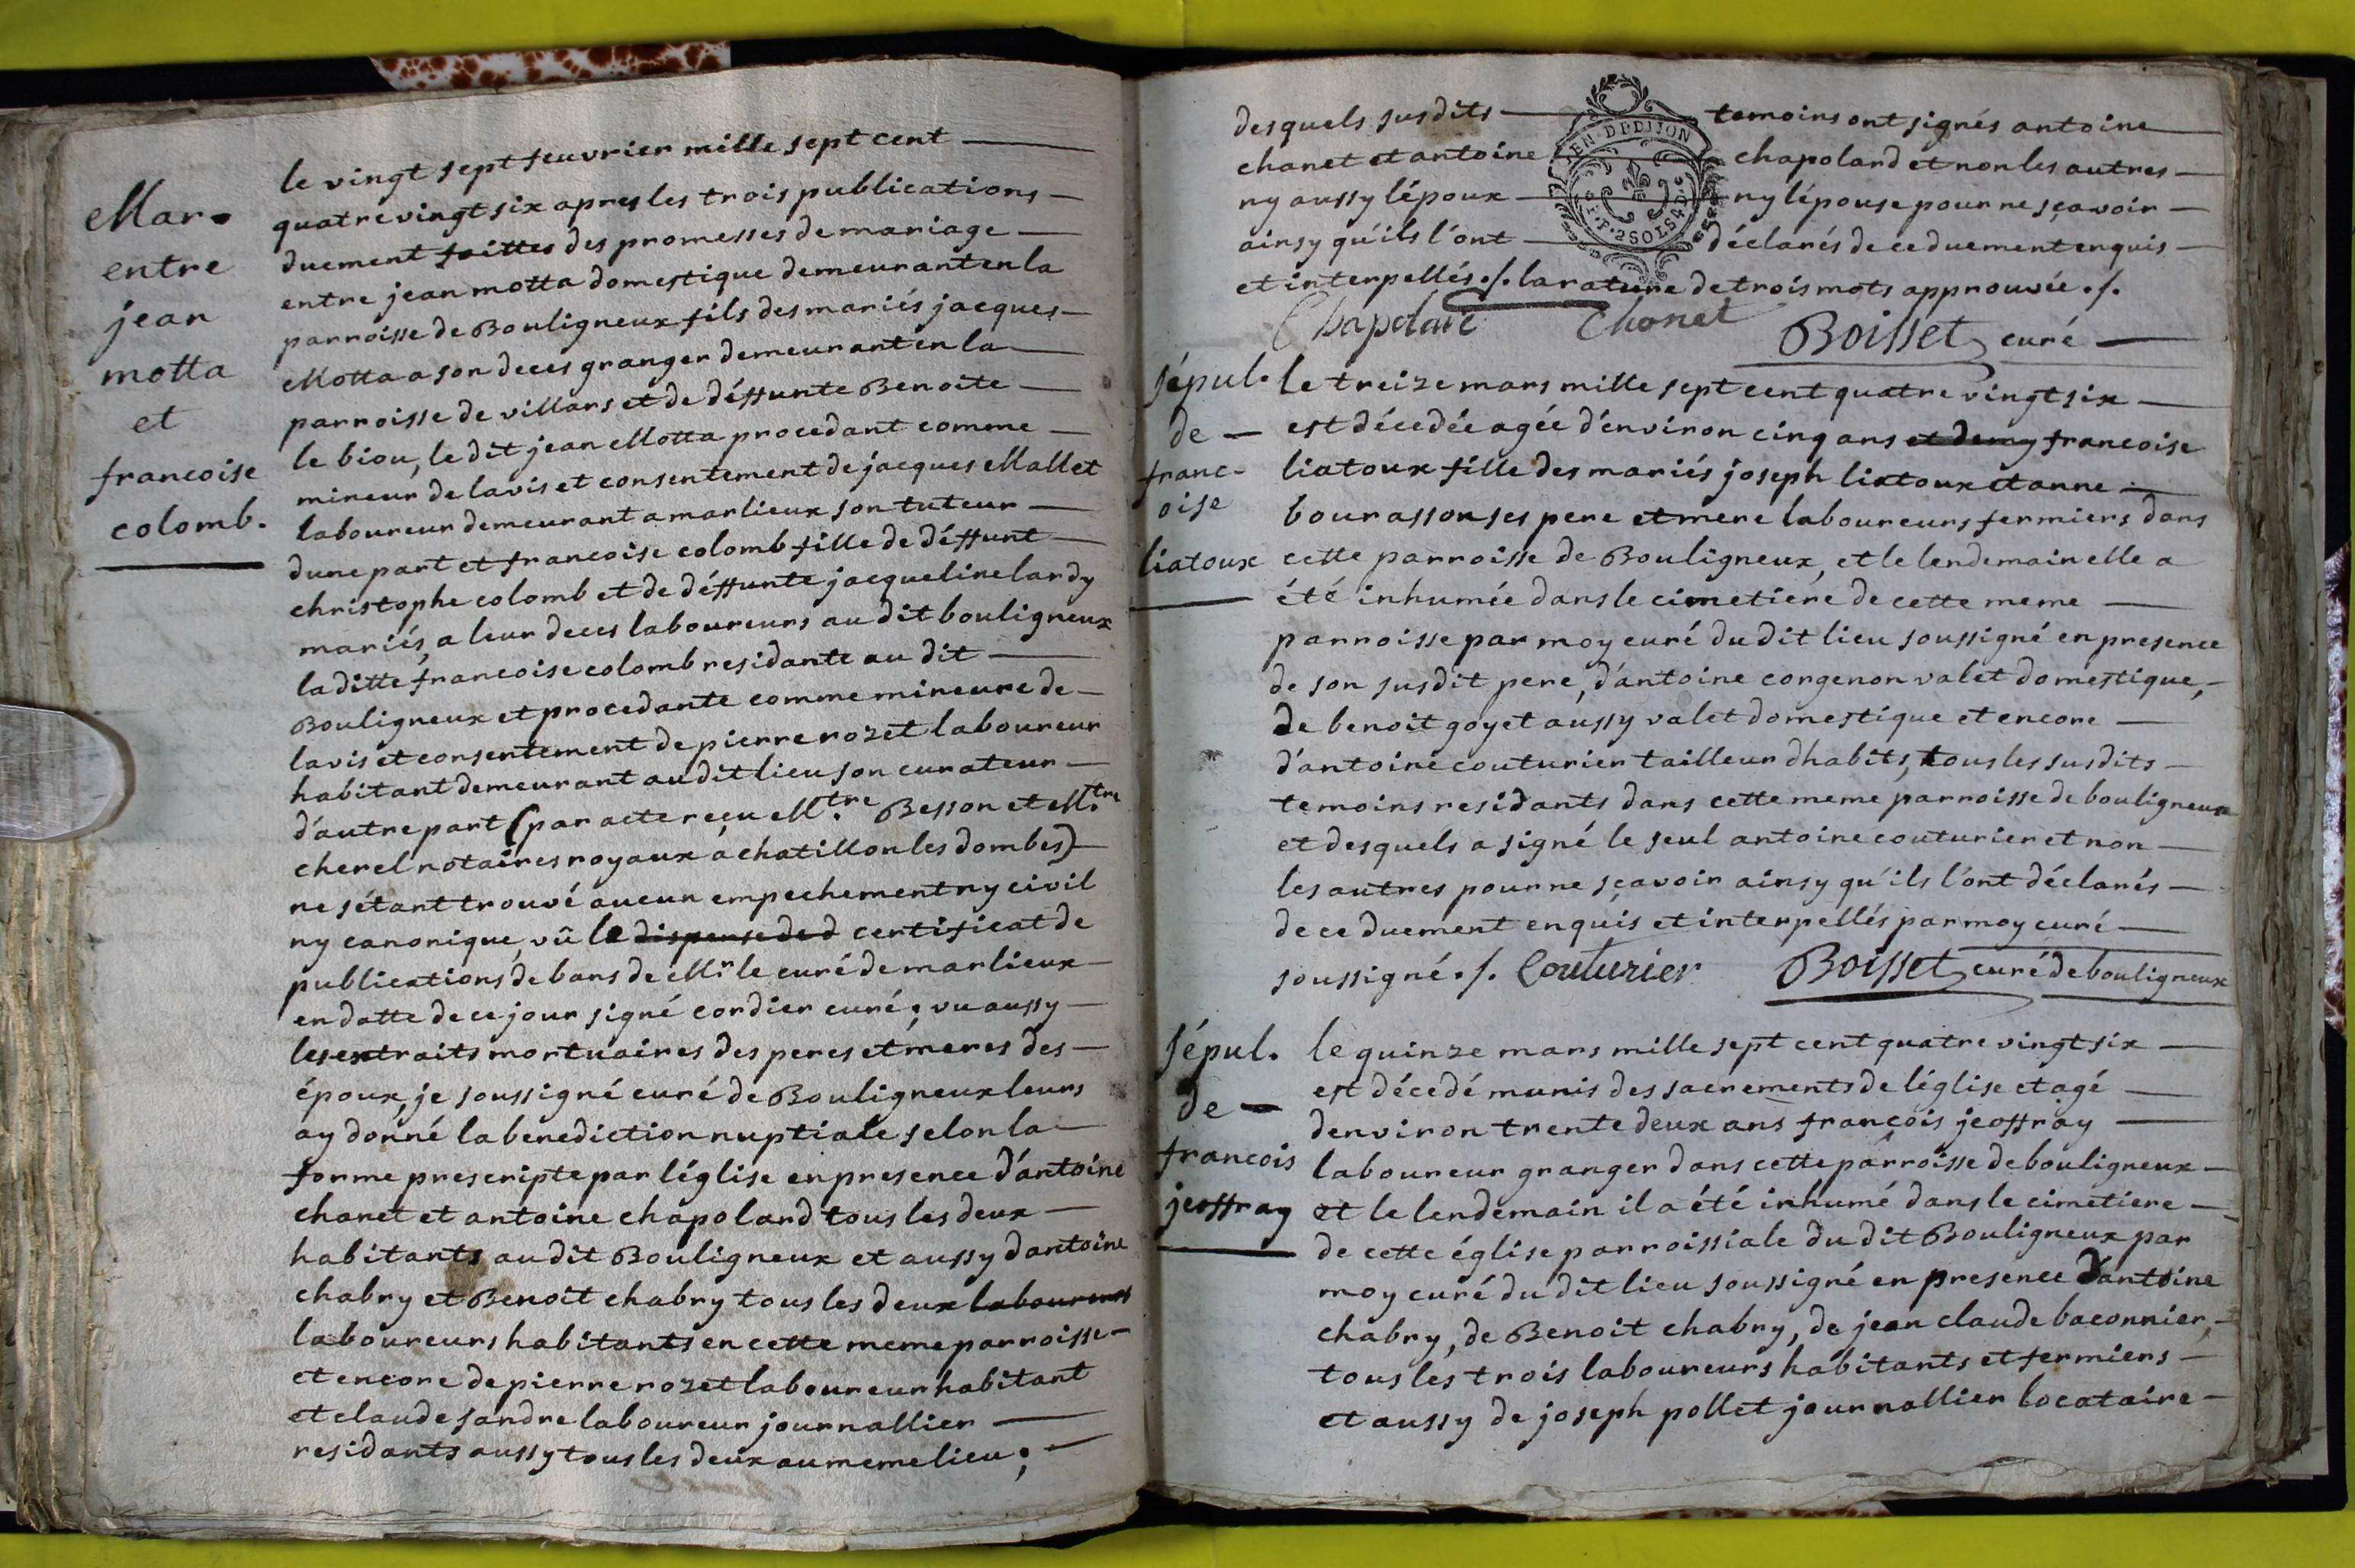 Mar.
entre
jean
motta
et
francoise
colomb.
le vingt sept feuvrier mille sept cent
quatre vingt six apres les trois publications
duement faittes des promesses de mariage
entre jean motta domestique demeurant en la
parroisse de Bouligneux fils des mariés jacques
Motta a son deces granger demeurant en la
parroisse de villars et de déffunte Benoite
le biou, le dit jean Motta procedant comme
mineur de lavis et consentement de jacques Mallet
laboureur demeurant a marlieux son tuteur
dune part et francoise colomb fille de déffunt
christophe colomb et de déffunte jacqueline lardy
mariés, a leur deces laboureurs au dit bouligneux
la ditte francoise colomb residante au dit
Bouligneux et procedante comme mineure de
lavis et consentement de pierre rozet laboureur
habitant demeurant au dit lieu son curateur
d'autre part (par acte reçu M.tre Besson et M.tre
cherel notaires royaux a chatillon les dombes)
ne s'étant trouvé aucun empechement ny civil
ny canonique, vû le dispense de d certificat de
publications de bans de Mr le curé de marlieux
en datte de ce jour signé cordier curé; vu aussy
les extraits mortuaires des peres et meres des
époux, je soussigné curé de Bouligneux leurs
ay donné la benediction nuptiale selon la
forme prescripte par léglise en presence d'antoine
chanet et antoine chapoland tous les deux
habitants au dit Bouligneux et aussy dantoine
chabry et Benoit chabry tous les deux laboureurs
laboureurs habitants en cette meme parroisse
et encore de pierre rozet laboureur habitant
et claude sandre laboureur journallier
residants aussy tous les deux au meme lieu;
desquels susdits temoins ont signés antoine
chanet et antoine chapoland et non les autres
ny aussy lépoux ny lépouse pour ne sçavoir
ainsy qu'ils l'ont déclarés de ce duement enquis
et interpellés ./. la rature de trois mots approuvée ./.
GEN. D. DIJON
2 SOLS 4 D.
Chapolard Chonet Boisset curé
sépul.
de
franc-
oise
liatoux
le treize mars mille sept cent quatre vingt six
est décedée agée d'environ cinq ans et demy francoise
liatoux fille des mariés joseph liatoux et anne
bourasson ses pere et mere laboureurs fermiers dans
cette parroisse de Bouligneux, et le lendemain elle a
été inhumée dans le cimetiere de cette meme
parroisse par moy curé du dit lieu soussigné en presence
de son susdit pere, d'antoine corgenon valet domestique,
de benoit goyet aussy valet domestique et encore
d'antoine couturier tailleur dhabits, tous les susdits
temoins residants dans cette meme parroisse de bouligneux
et desquels a signé le seul antoine couturier et non
les autres pour ne sçavoir ainsy qu'ils l'ont déclarés
de ce duement enquis et interpellés par moy curé
soussigné ./. Couturier Boisset curé de bouligneux
sépul.
de
francois
jeoffray
le quinze mars mille sept cent quatre vingt six
est décedé munis des sacrements de léglise et agé
denviron trente deux ans françois jeoffray
laboureur granger dans cette parroisse de bouligneux
et le lendemain il a été inhumé dans le cimetiere
de cette église parroissiale du dit Bouligneux par
moy curé du dit lieu soussigné en presence d'antoine
chabry, de Benoit chabry, de jean claude baconnier,
tous les trois laboureurs habitants et fermiers
et aussy de joseph pollet journallier locataire